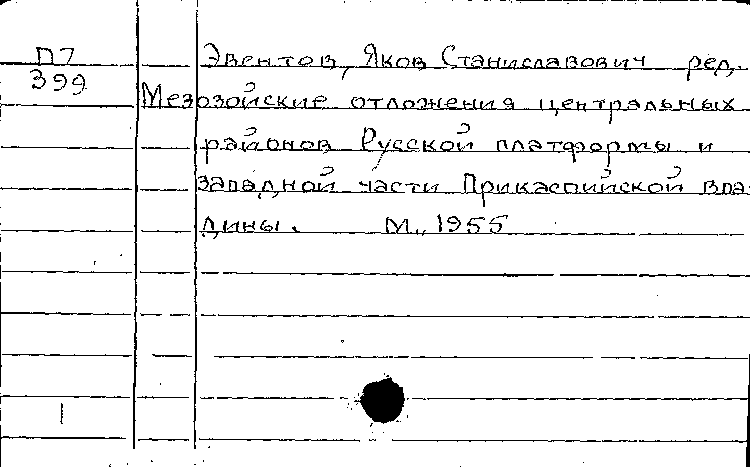 П7
399
Эвентов, Яков Станиславович ред.
Мезозойские отложения центральных
районов Русской платформы и
западной части Прикаспийской впа-
дины. М., 1955
1